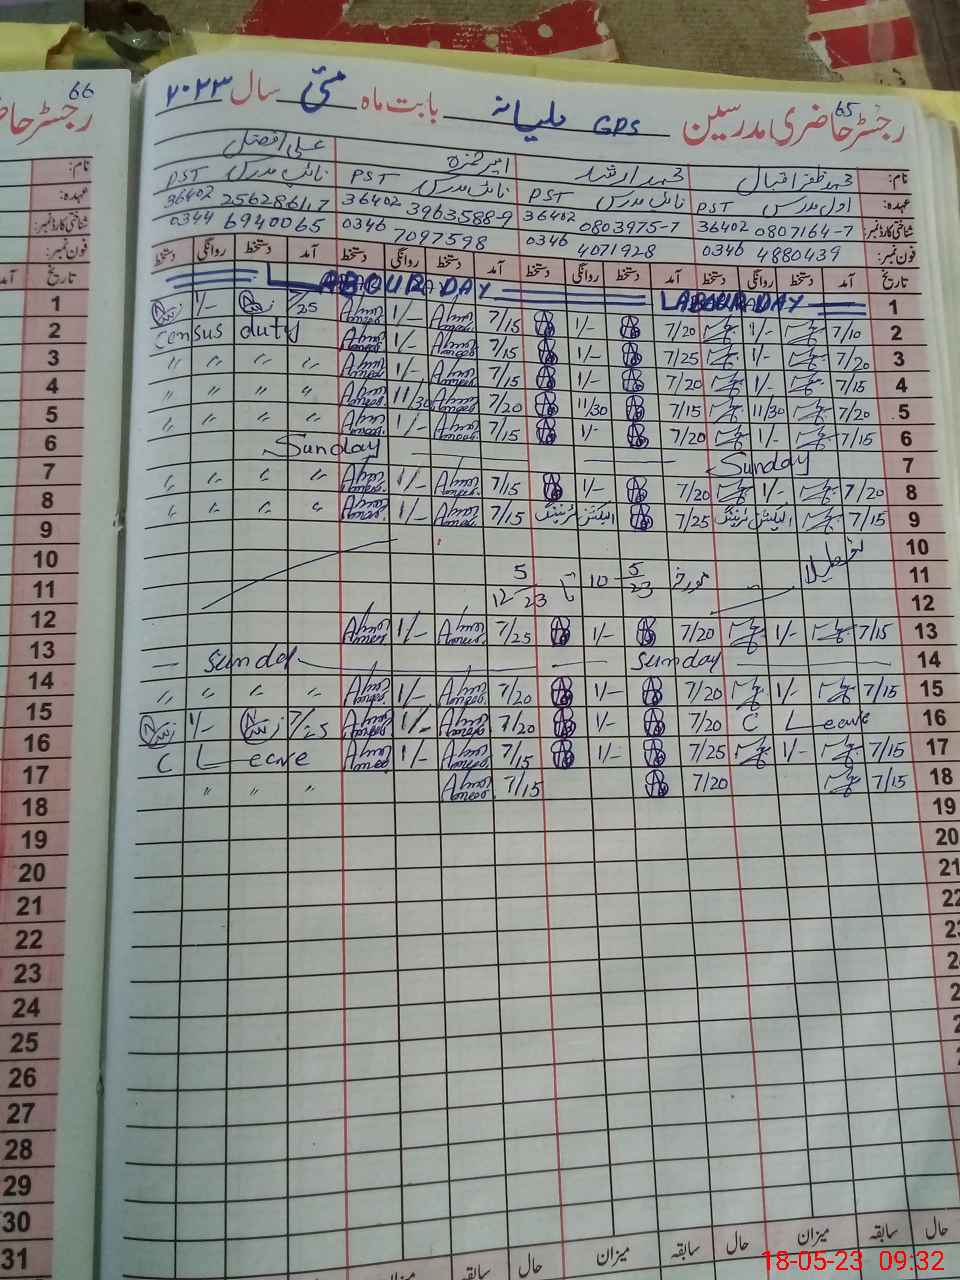 66
65 رجسٹر حاضری مدرسین GPS ملیانہ بابت ماہ مئی سال ۲۰۲۳
نام: محمد ظفر اقبال محمد ارشد امیر حمزہ علی افضل
عہدہ: اول مدرس PST نائب مدرس PST نائب مدرس PST نائب مدرس PST
شناختی کارڈ نمبر: 36402 0807164-7 36402 0803975-7 36402 3963588-9 36402 2562861-7
فون نمبر: 0346 4880439 0346 4071928 0346 7097598 0344 6940065
تاریخ آمد دستخط روانگی دستخط آمد دستخط روانگی دستخط آمد دستخط روانگی دستخط آمد دستخط روانگی دستخط
1 LABOUR DAY LABOUR DAY
2 7/10 1/- 7/20 1/- 7/15 1/- 7/25 1/-
3 7/20 1/- 7/25 1/- 7/15 1/- census duty
4 7/15 1/- 7/20 1/- 7/15 1/- " " " "
5 7/20 11/30 7/15 11/30 7/20 11/30 " " " "
6 7/15 1/- 7/20 1/- 7/15 1/- " " " "
7 Sunday Sunday
8 7/20 1/- 7/20 1/- 7/15 1/- " " " "
9 7/15 الیکشن ٹریننگ 7/25 الیکشن ٹریننگ 7/15 1/- " " " "
10
11 مورخہ 10 5/23 تا 12 5/23
12
13 7/15 1/- 7/20 1/- 7/25 1/-
14 Sunday Sunda
15 7/15 1/- 7/20 1/- 7/20 1/- " " " "
16 C Leave 7/20 1/- 7/20 1/- 7/25 1/-
17 7/15 1/- 7/25 1/- 7/15 1/- C Leave
18 7/15 7/20 7/15 " " "
19
20
21
22
حال سابقہ میزان حال سابقہ میزان حال سابقہ میزان
رجسٹر
نام:
عہدہ:
شناختی کارڈ نمبر:
فون نمبر:
تاریخ
1
2
3
4
5
6
7
8
9
10
11
12
13
14
15
16
17
18
19
20
21
22
23
24
25
26
27
28
29
30
31
18-05-23 09:32